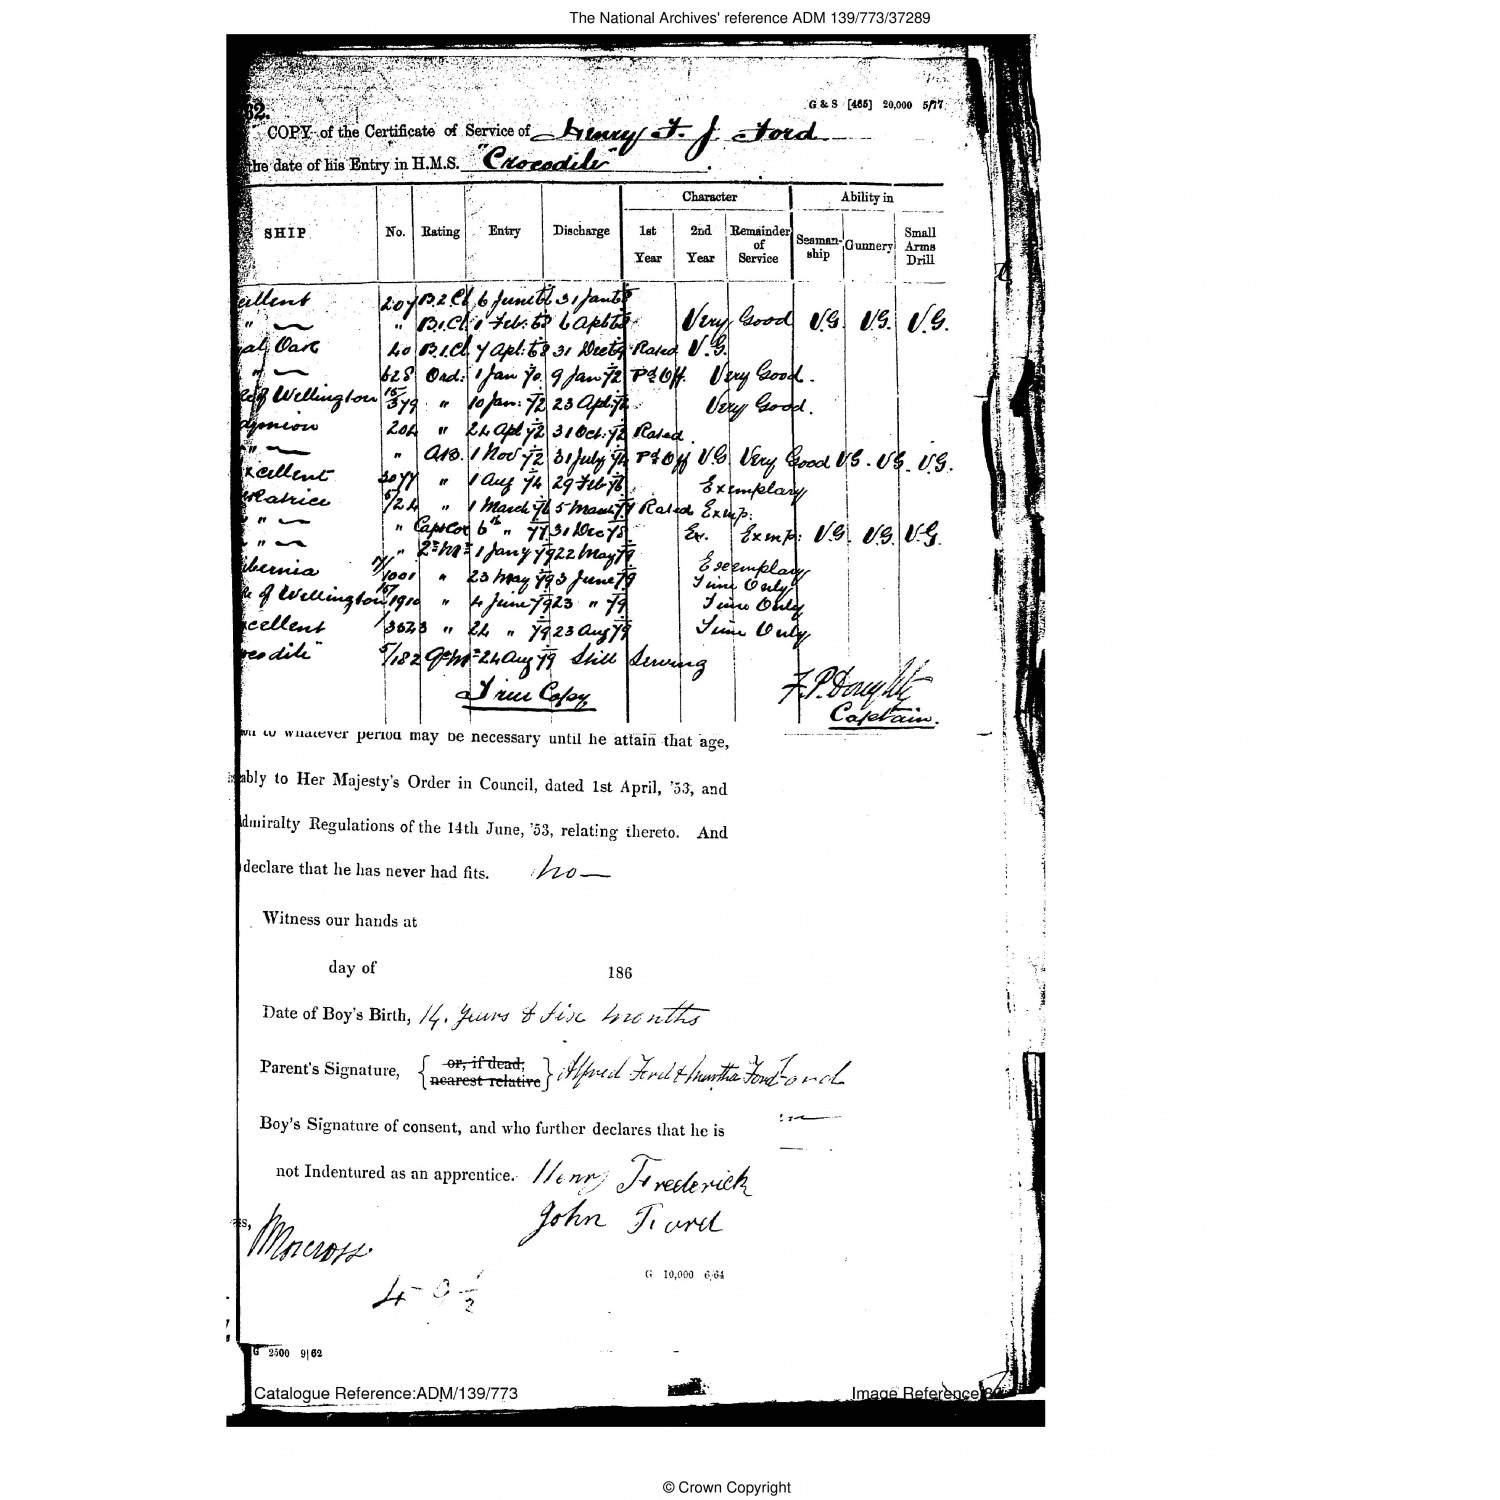 The National Archives' reference ADM 139/773/37289
G & S [465] 20,000 5/77
62.
COPY of the Certificate of Service of Henry F. J. Ford
the date of his Entry in H.M.S. "Crocodile"
Character Ability in
SHIP No. Rating Entry Discharge 1st Year 2nd Year Remainder of Service Seaman-ship Gunnery Small Arms Drill
cellent 207 B.2.Cl 6 June 66 31 Jan 68
" " B.1.Cl 1 Feb: 68 6 Apl 68 Very Good V.G. V.G. V.G.
yal Oak 40 B.1.Cl 7 Apl: 68 31 Dec 69 Rated V.G.
" 628 Ord: 1 Jan 70 9 Jan 72 Pd Off Very Good.
ke of Wellington 15/379 " 10 Jan: 72 23 Apl: 72 Very Good.
dymion 204 " 24 Apl 72 31 Oct: 72 Rated
" " A.B. 1 Nov 72 31 July 74 Pd Off V.G. Very Good V.G. V.G. V.G.
xcellent 3077 " 1 Aug 74 29 Feb 76 Exemplary
5/24 " 1 March 76 5 March 77 Rated Exemp:
" " 6th " 77 31 Dec 78 Ex. Exemp: V.G. V.G. V.G.
" " 1 Jany 79 22 May 79 Exemplary
ibernia 1001 " 23 May 79 3 June 79 Time Only
ke of Wellington 15/1910 " 4 June 79 23 " 79 Time Only
xcellent 1/3523 " 24 " 79 23 Aug 79 Time Only
ocodile" 5/182 24 Aug 79 Still Serving
True Copy
F. P. Doughty
Captain.
on to whatever period may be necessary until he attain that age,
ably to Her Majesty's Order in Council, dated 1st April, '53, and
dmiralty Regulations of the 14th June, '53, relating thereto. And
declare that he has never had fits. no
Witness our hands at
day of 186
Date of Boy's Birth, 14 Years & Six months
Parent's Signature, { or, if dead, nearest relative } Alfred Ford & Martha Ford Ford
Boy's Signature of consent, and who further declares that he is
not Indentured as an apprentice. Henry Frederick
John Ford
ss,
Norcross
4 - 9 1/2
G 10,000 6/64
G 2500 9|62
Catalogue Reference:ADM/139/773
Image Reference
© Crown Copyright